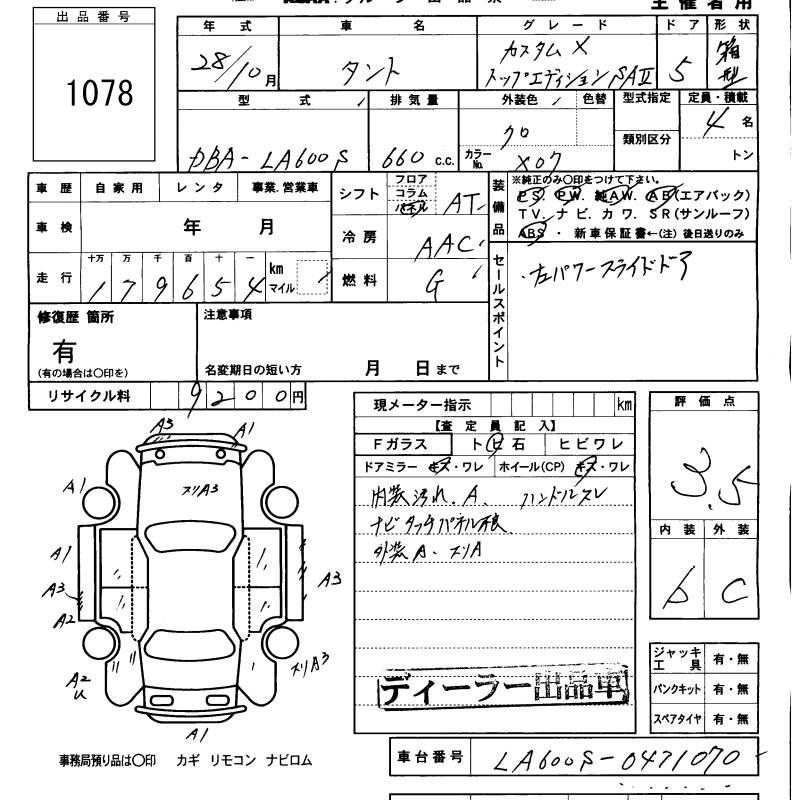 主催者用
出品番号
1078
年式 車名 グレード ドア 形状
28/10月 タント カスタムX トップエディションSAⅡ 5 箱型
型式 排気量 外装色 色替 型式指定 定員・積載
類別区分
DBA-LA600S 660 c.c. クロ カラーNo. X07 4名
トン
車歴 自家用 レンタ 事業.営業車
車検 年 月
走行 十万 万 千 百 十 一 km マイル
179654
シフト フロア コラム パネル AT
冷房 AAC
燃料 G
装備品 ※純正のみ○印をつけて下さい。
PS. PW. 純AW. AB(エアバック)
TV. ナビ. カワ. SR(サンルーフ)
ABS・新車保証書←(注) 後日送りのみ
セールスポイント
・左パワースライドドア
修復歴 箇所
有
(有の場合は○印を)
注意事項
名変期日の短い方 月 日まで
リサイクル料 9200円
現メーター指示 km
【査定員記入】
Fガラス トビ石 ヒビワレ
ドアミラー キズ・ワレ ホイール(CP) キズ・ワレ
内装汚れ.A. ハンドルスレ
ナビタッチパネル不良
外装A.スリA
ディーラー出品車
評価点
3.5
内装 外装
b C
ジャッキ工具 有・無
パンクキット 有・無
スペアタイヤ 有・無
A3 A1
A1 スリA3
A1
A3 A3
A2
A2 U スリA3
A1
事務局預り品は○印 カギ リモコン ナビロム
車台番号 LA600S-0471070